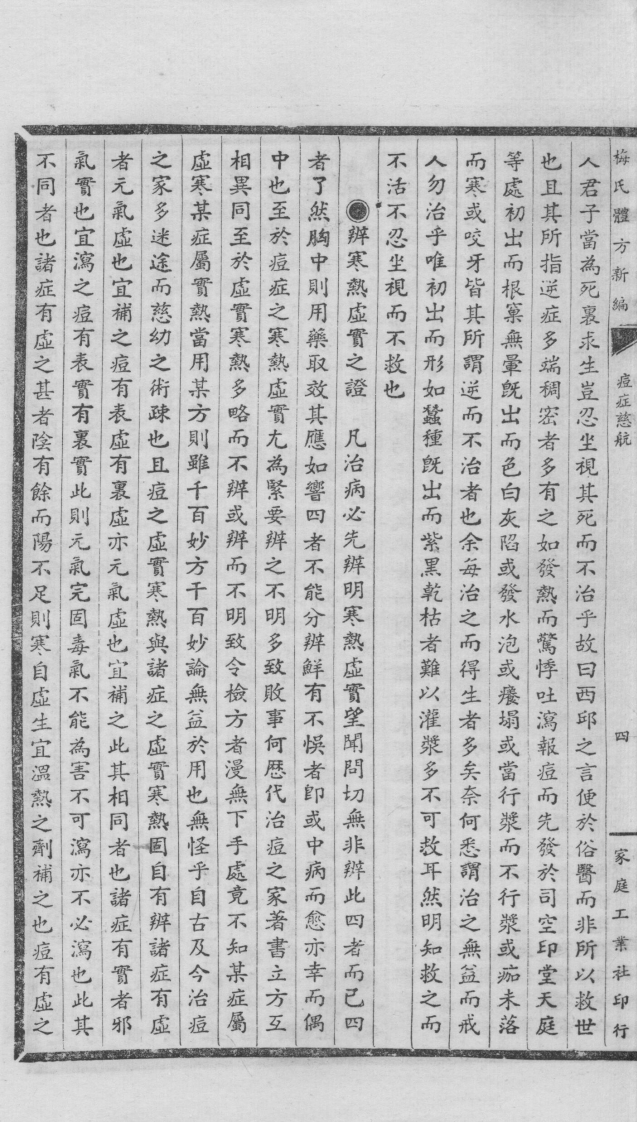 梅氏體方新編 痘症慈航 四 家庭工業社印行
人君子當為死裏求生豈忍坐視其死而不治乎故曰西邱之言便於俗醫而非所以救世
也且其所指逆症多端稠密者多有之如發熱而驚悸吐瀉報痘而先發於司空印堂天庭
等處初出而根窠無暈既出而色白灰陷或發水泡或癢塌或當行漿而不行漿或痂未落
而寒或咬牙皆其所謂逆而不治者也余每治之而得生者多矣奈何悉謂治之無益而戒
人勿治乎唯初出而形如蠶種既出而紫黑乾枯者難以灌漿多不可救耳然明知救之而
不活不忍坐視而不救也
◉辦寒熱虛實之證 凡治病必先辦明寒熱虛實望聞問切無非辦此四者而已四
者了然胸中則用藥取效其應如響四者不能分辦鮮有不悞者卽或中病而愈亦幸而偶
中也至於痘症之寒熱虛實尢為緊要辦之不明多致敗事何歷代治痘之家著書立方互
相異同至於虛實寒熱多略而不辦或辦而不明致令檢方者漫無下手處竟不知某症屬
虛寒某症屬實熱當用某方則雖千百妙方千百妙論無益於用也無怪乎自古及今治痘
之家多迷途而慈幼之術疎也且痘之虛實寒熱與諸症之虛實寒熱固自有辦諸症有虛
者元氣虛也宜補之痘有表虛有裏虛亦元氣虛也宜補之此其相同者也諸症有實者邪
氣實也宜瀉之痘有表實有裏實此則元氣完固毒氣不能為害不可瀉亦不必瀉也此其
不同者也諸症有虛之甚者陰有餘而陽不足則寒自虛生宜溫熱之劑補之也痘有虛之